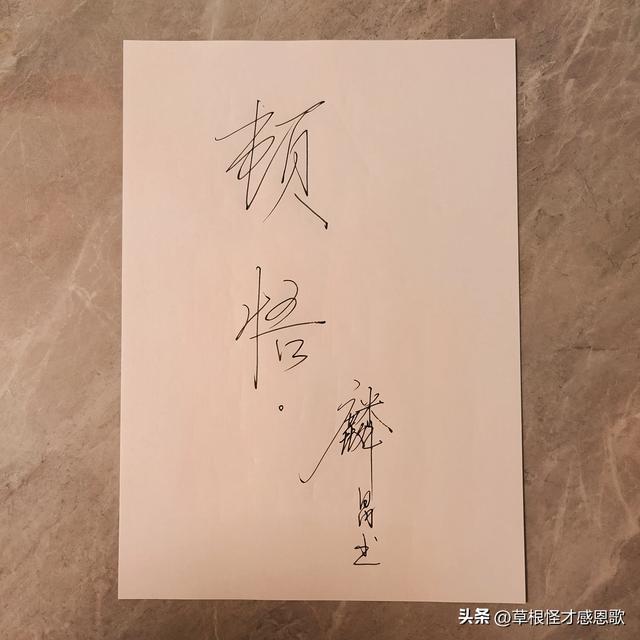 顿
悟。
麟昌书
头条 @草根怪才感恩歌